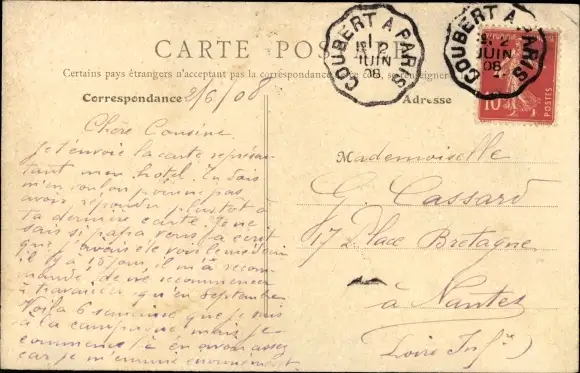 CARTE POSTALE
Certains pays étrangers n'acceptant pas la correspondance se renseigner
Correspondance 2/6/08
Adresse
COUBERT A PARIS
1
2
JUIN
08
COUBERT A PARIS
2
JUIN
08
10
POSTES
Chère Cousine
Je t'envoie la carte représen
tant mon hotel. Tu dois
m'en vouloir pourne pas
avoir répondu plustot à
ta dernière carte. Je ne
sais si papa vous a écrit
que j'avais été voir le médecin
il y a 15 jours, il m'a recom
mandé de ne recommencer
à travailler qu'en Septembre
Voilà 6 semaines que je suis
à la campagne, mais je
commence à en avoir assez
car je m'ennuie énormément
Mademoiselle
G. Cassard
17 Place Bretagne
à Nantes
Loire Infre)